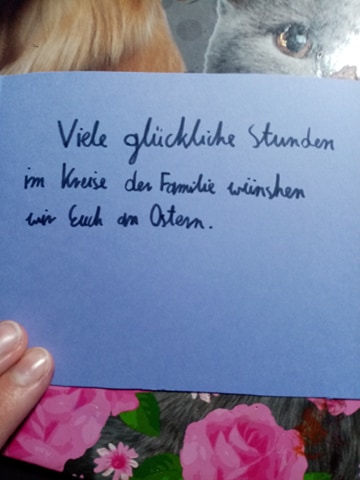 Viele glückliche Stunden
im Kreise der Familie wünshen
wir Euch an Ostern.